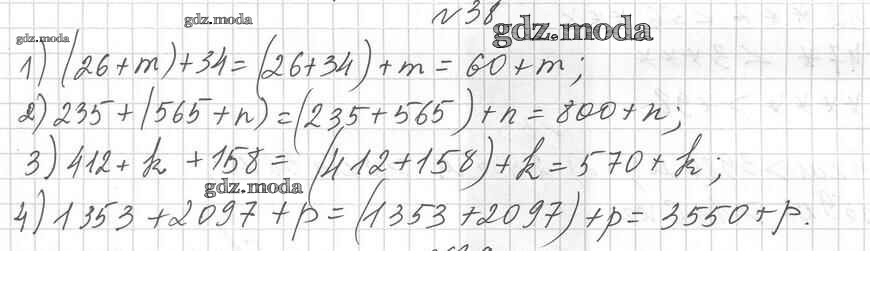 gdz.moda
№38
gdz.moda
gdz.moda
1) (26+m)+34=(26+34)+m=60+m;
2) 235+(565+n)=(235+565)+n=800+n;
3) 412+k+158=(412+158)+k=570+k;
gdz.moda
4) 1353+2097+p=(1353+2097)+p=3550+p.